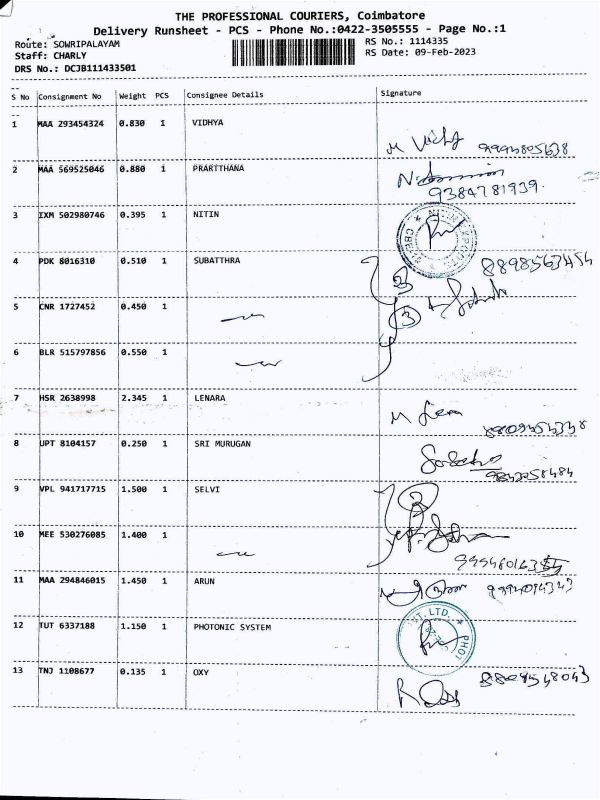 THE PROFESSIONAL COURIERS, Coimbatore
Delivery Runsheet - PCS - Phone No.:0422-3505555 - Page No.:1
Route: SOWRIPALAYAM
RS No.: 1114335
Staff: CHARLY
RS Date: 09-Feb-2023
DRS No.: DCJB111433501
S No Consignment No Weight PCS Consignee Details Signature
1 MAA 293454324 0.830 1 VIDHYA
2 MAA 569525046 0.880 1 PRARTTHANA
9384781939
3 IXM 502980746 0.395 1 NITIN
4 PDK 8016310 0.510 1 SUBATTHRA
8898563454
5 CNR 1727452 0.450 1
6 BLR 515797856 0.550 1
7 HSR 2638998 2.345 1 LENARA
8 UPT 8104157 0.250 1 SRI MURUGAN
9 VPL 941717715 1.500 1 SELVI
10 MEE 530276085 1.400 1
11 MAA 294846015 1.450 1 ARUN
12 TUT 6337188 1.150 1 PHOTONIC SYSTEM
13 TNJ 1108677 0.135 1 OXY